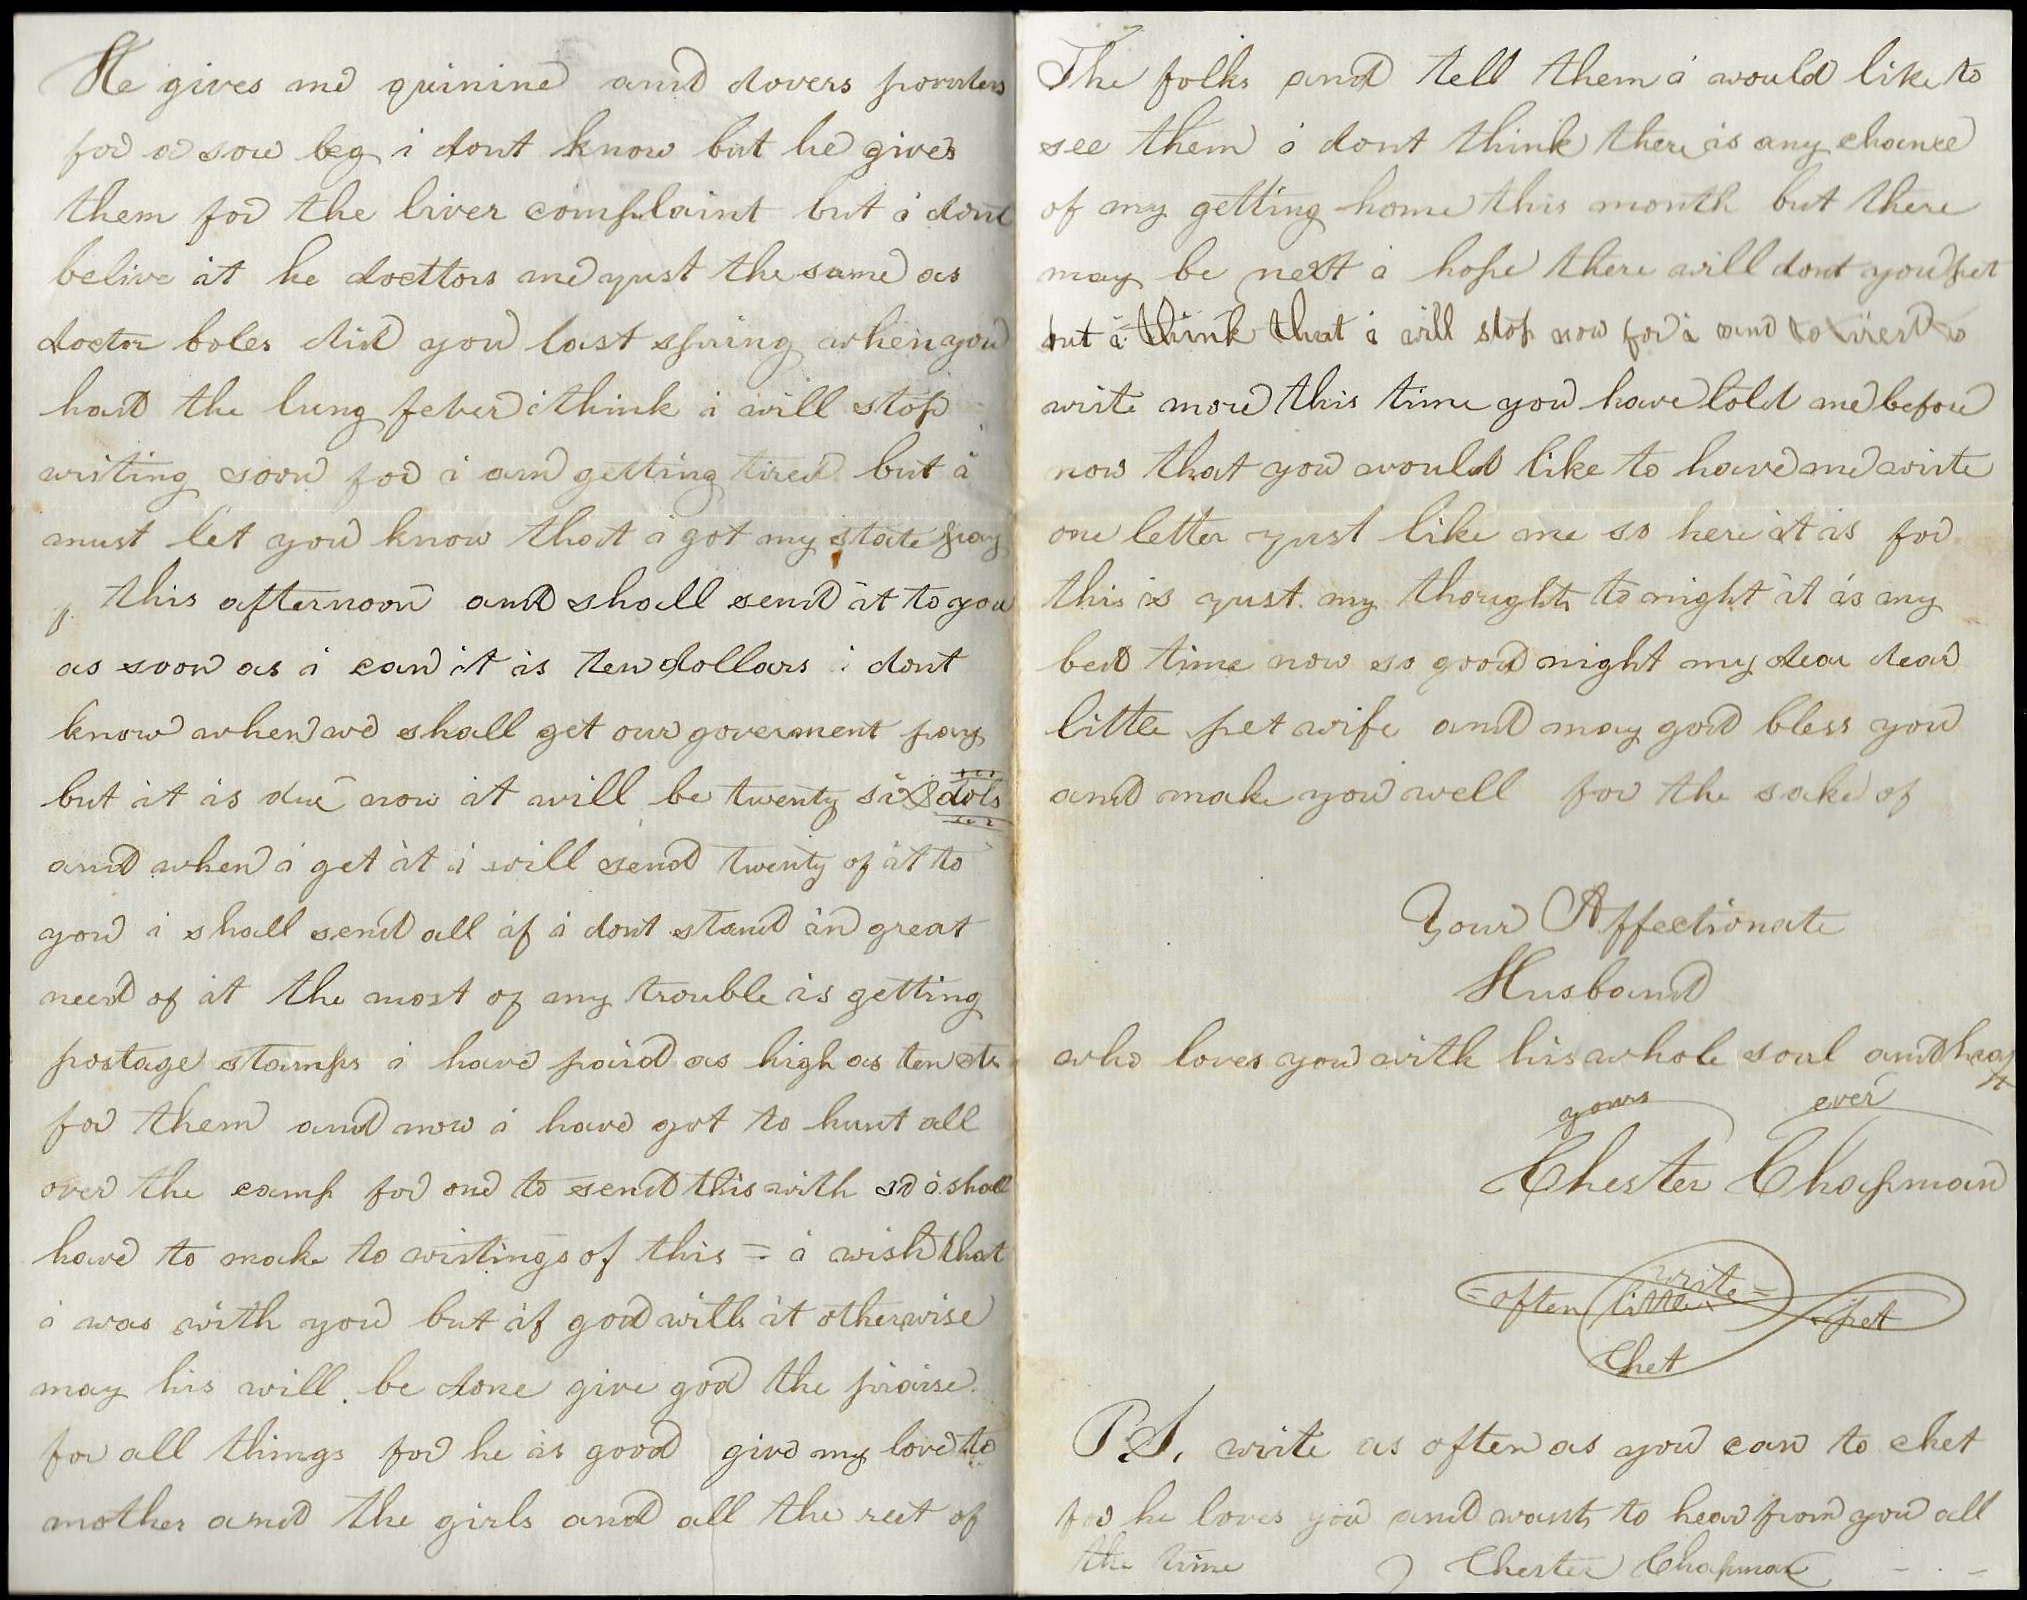 He gives me quinine and dovers powders
for a sore leg i dont know but he gives
them for the liver complaint but i dont
belive it he docttors me just the same as
doctor boles did you last spring when you
had the lung fever i think i will stop
writing soon for i am getting tired but i
must let you know that i got my state pay
this afternoon and shall send it to you
as soon as i can it is ten dollars i dont
know when we shall get our goverment pay
but it is due now it will be twenty six dols
and when i get it i will send twenty of it to
you i shall send all if i dont stand in great
need of it the most of my trouble is getting
postage stamps i have paid as high as ten cts
for them and now i have got to hunt all
over the camp for one to send this with so i shall
have to make to writings of this = i wish that
i was with you but if god wills it otherwise
may his will be done give god the praise
for all things for he is good give my love to
mother and the girls and all the rest of
The folks and tell them i would like to
see them i dont think there is any chance
of my getting home this month but there
may be next i hope there will dont you pet
but i think that i will stop now for i am to tired to
write more this time you have told me before
now that you would like to have me write
one letter just like me so here it is for
this is just my thoughts to night it is my
bed time now so good night my dear dear
little pet wife and may god bless you
and make you well for the sake of
Your Affectionate
Husband
who loves you with his whole soul and heart
yours ever
Chester Chapman
write
=often little= pet
Chet
P.S. write as often as you can to chet
for he loves you and wants to hear from you all
the time Chester Chapman